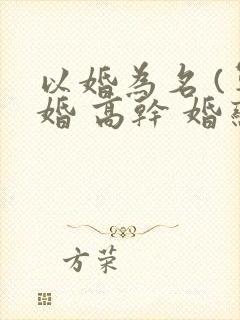 以婚為名(
婚 高幹 婚
方荣